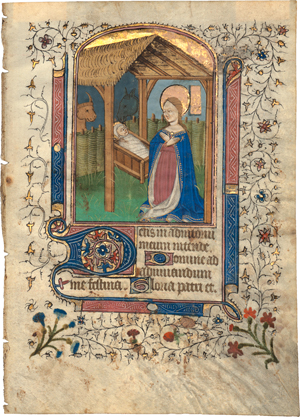 Deus in adiutoriu
meum intende
Domine ad
adiuuandum
me festina. Gloria patri et.